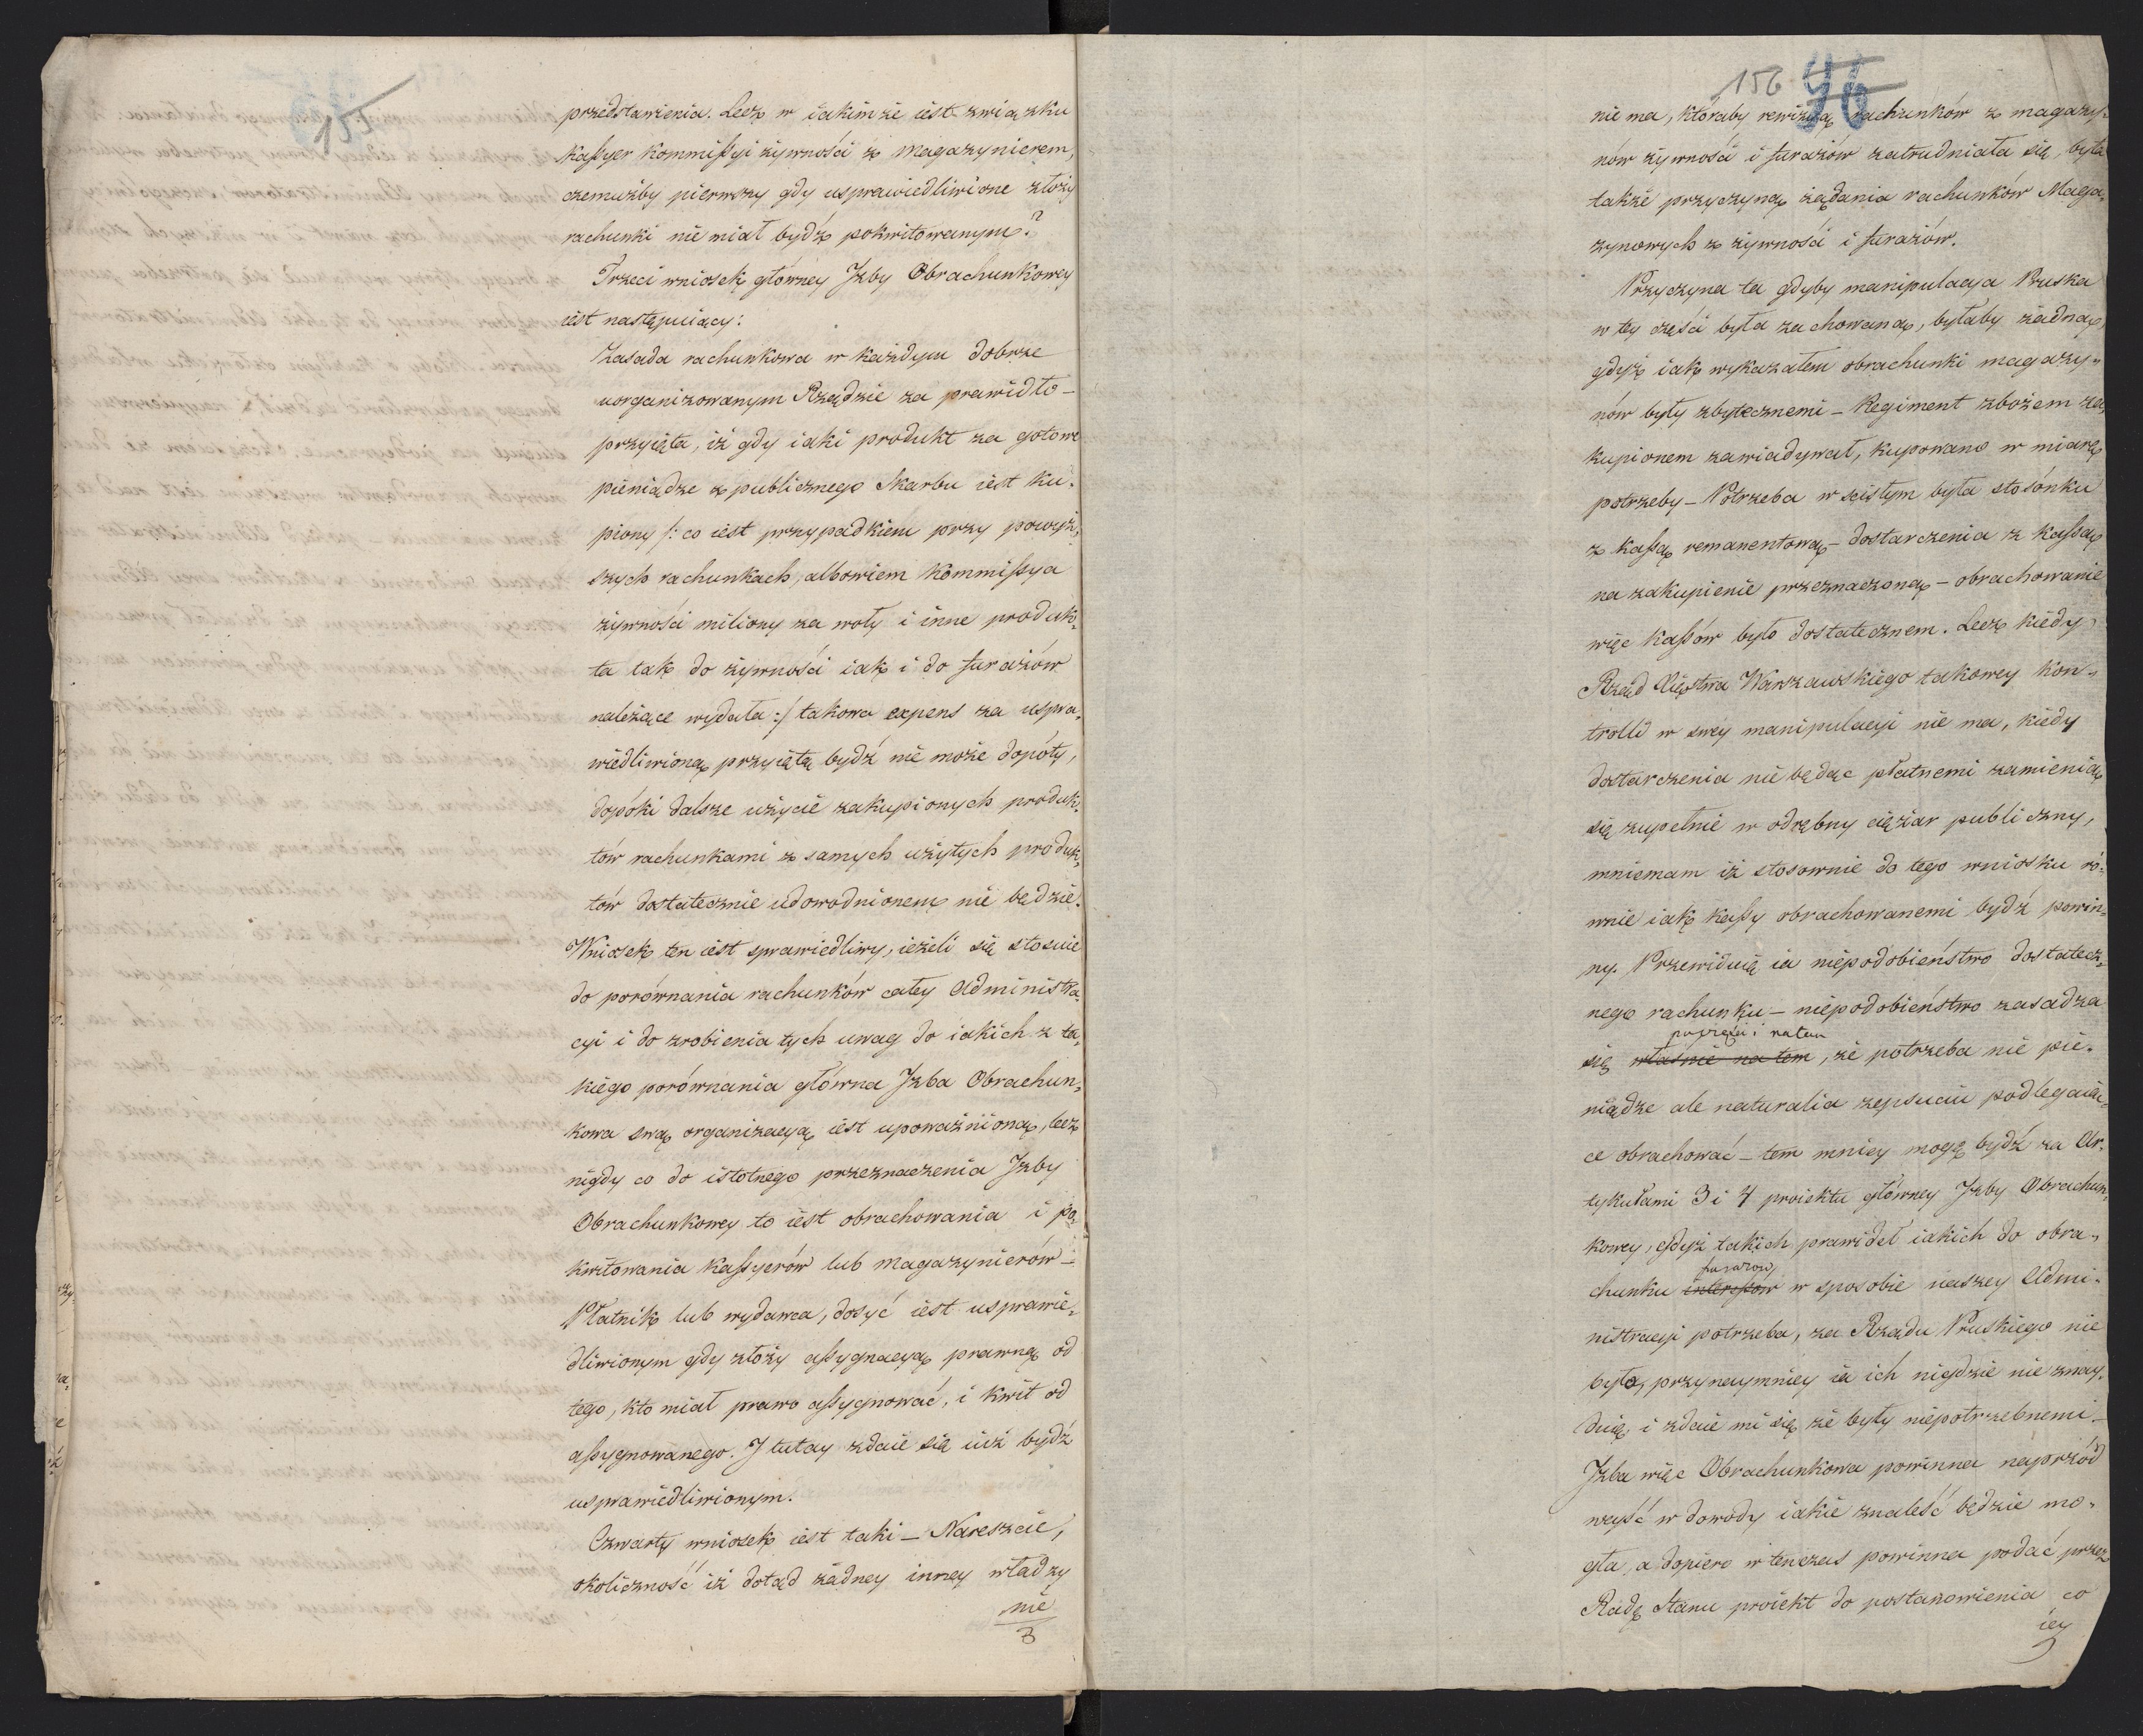 155
przedstawienia. Lecz w iakimże iest związku
Kaſsyer Kommiſsyi żywności z Magazynierem,
czemużby pierwszy gdy usprawiedliwione złoży
rachunki nie miał bydź pokwitowanym?
Trzeci wniosek główney Jzby Obrachunkowey
iest następuiący:
Zasada rachunkowa w każdym dobrze
uorganizowanym Rządzie za prawidło –
przyięta, iż gdy iaki produkt za gotowe
pieniądze z publicznego Skarbu iest ku-
piony /: co iest przypadkiem przy powyż-
szych rachunkach, albowiem Kommiſsya
żywności miliony za woły i inne produk-
ta tak do żywności iak i do furażów
należące wydała :/ takowa expens za uspra-
wiedliwioną przyiętą bydź nie może dopóty,
dopóki dalsze użycie zakupionych produk-
tów rachunkami z samych użytych produk-
tów dostatecznie udowodnionem nie będzie.
Wniosek ten iest sprawiedliwy, ieżeli się stosuie
do porównania rachunków całey Administra-
cyi i do zrobienia tych uwag do iakich z ta-
kiego porównania główna Jzba Obrachun-
kowa swą organizacyą iest upoważnioną, lecz
nigdy co do istotnego przeznaczenia Jzby
Obrachunkowey to iest obrachowania i po-
kwitowania Kaſsyerów lub Magazynierów –
Płatnik lub wydawca, dosyć iest usprawie-
dliwionym gdy złoży aſsygnacyą prawną od
tego, kto miał prawo aſsygnować, i kwit od
aſsygnowanego. J tutay zdaie się iuż bydź
usprawiedliwionym.
Czwarty wniosek iest taki – Nareszcie,
okoliczność iż dotąd żadney inney władzy
nie
3
156 76
nie ma, któraby rewizyą rachunków z magazy-
nów żywności i furażów zatrudniała się, była
także przyczyną żądania rachunków Maga-
zynowych z żywności i furażów.
Przyczyna ta gdyby manipulacya Pruska
w tey części była zachowaną, byłaby żadną,
gdyż iak wykazałem obrachunki magazy-
nów były zbytecznemi – Regiment zbożem za-
kupionem zawiadywał, kupowano w miarę
potrzeby – Potrzeba w ścisłym była stosónku
z kaſsą remanentową – dostarczenia z kaſsą
na zakupienie przeznaczoną – obrachowanie
więc kaſsów było dostatecznem. Lecz kiedy
Rząd Xięstwa Warszawskiego takowey kon-
trolli w swey manipulacyi nie ma, kiedy
dostarczenia nie będąc płatnemi zamienią
się zupełnie w odrębny ciężar publiczny,
mniemam iż stosownie do tego wniosku ró-
wnie iak kaſsy obrachowanemi bydź powin-
ny. Przewiduię ia niepodobieństwo dostatecz-
nego rachunku – niepodobieństwo zasadza
się właśnie na tem, że potrzeba nie pie-
niądze ale naturalia zepsuciu podlegaią-
ce obrachować – tem mniey mogę bydź za Ar-
tykułami 3 i 4 proiektu główney Jzby Obrachun-
kowey, gdyż takich prawideł iakich do obra-
furazow
chunku interesów w sposobie naszey Admi-
nistracyi potrzeba, za Rządu Pruskiego nie
było, przynaymniey ia ich nigdzie nie znay-
duię i zdaie mi się że były niepotrzebnemi –
Jzba więc Obrachunkowa powinna naprzód
weyść w dowody iakie znaleść będzie mo-
gła, a dopiero w tenczas powinna podać przez
Radę Stanu proiekt do postanowienia co
iey